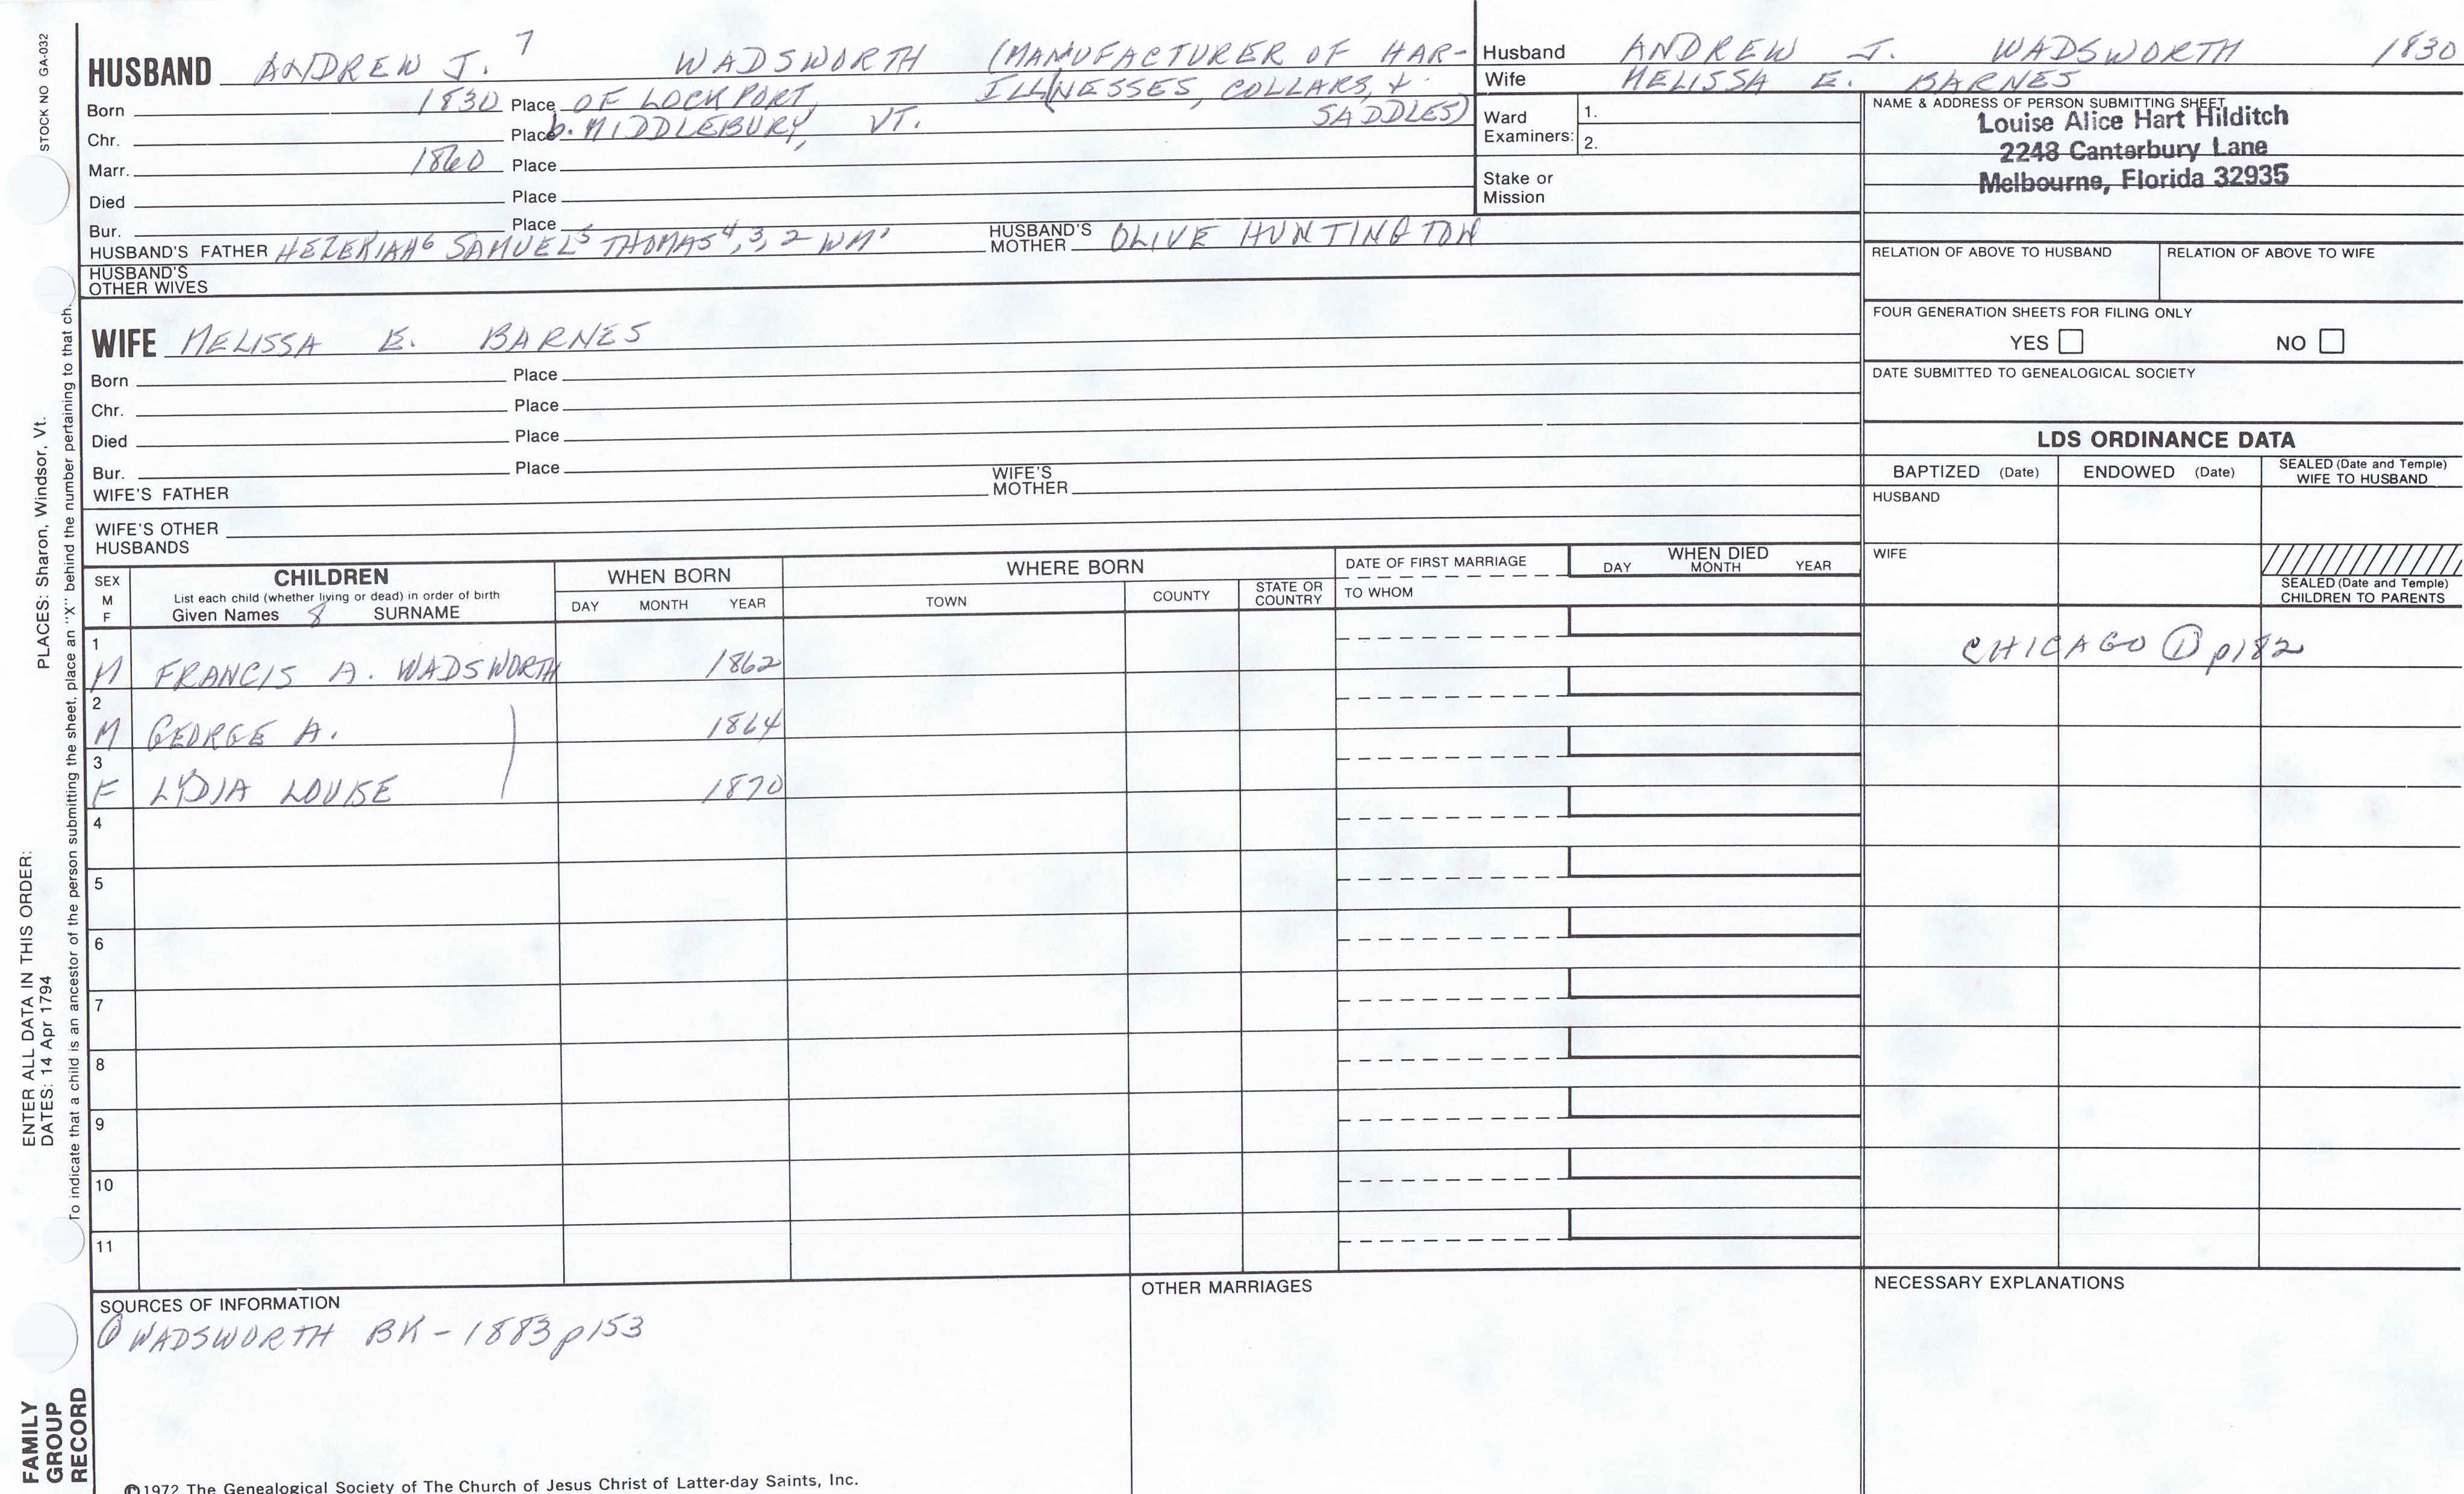 STOCK NO GA-032
HUSBAND ANDREW J. 7 WADSWORTH (MANUFACTURER OF HAR-
Born 1830 Place OF LOCKPORT, ILL. NESSES, COLLARS, &
Chr. Place b. MIDDLEBURY, VT. SADDLES)
Marr. 1860 Place
Died Place
Bur. Place
HUSBAND'S FATHER HEZEKIAH 6 SAMUEL 5 THOMAS 4, 3, 2 WM 1 HUSBAND'S MOTHER OLIVE HUNTINGTON
HUSBAND'S
OTHER WIVES
WIFE MELISSA E. BARNES
Born Place
Chr. Place
Died Place
Bur. Place
WIFE'S FATHER WIFE'S MOTHER
WIFE'S OTHER
HUSBANDS
Husband ANDREW J. WADSWORTH 1830
Wife MELISSA E. BARNES
Ward
Examiners:
1.
2.
Stake or
Mission
NAME & ADDRESS OF PERSON SUBMITTING SHEET
Louise Alice Hart Hilditch
2248 Canterbury Lane
Melbourne, Florida 32935
RELATION OF ABOVE TO HUSBAND RELATION OF ABOVE TO WIFE
FOUR GENERATION SHEETS FOR FILING ONLY
YES NO
DATE SUBMITTED TO GENEALOGICAL SOCIETY
LDS ORDINANCE DATA
BAPTIZED (Date) ENDOWED (Date) SEALED (Date and Temple)
WIFE TO HUSBAND
HUSBAND
WIFE
SEALED (Date and Temple)
CHILDREN TO PARENTS
SEX
M
F
CHILDREN
List each child (whether living or dead) in order of birth
Given Names 8 SURNAME
WHEN BORN
DAY MONTH YEAR
WHERE BORN
TOWN COUNTY STATE OR
COUNTRY
DATE OF FIRST MARRIAGE
TO WHOM
WHEN DIED
DAY MONTH YEAR
1
M FRANCIS A. WADSWORTH 1862 CHICAGO ① p182
2
M GEORGE A. 1864
3
F LYDIA LOUISE 1870
4
5
6
7
8
9
10
11
SOURCES OF INFORMATION
① WADSWORTH BK - 1883 p153
OTHER MARRIAGES
NECESSARY EXPLANATIONS
©1972 The Genealogical Society of The Church of Jesus Christ of Latter-day Saints, Inc.
FAMILY
GROUP
RECORD
ENTER ALL DATA IN THIS ORDER:
DATES: 14 Apr 1794
PLACES: Sharon, Windsor, Vt.
To indicate that a child is an ancestor of the person submitting the sheet, place an "X" behind the number pertaining to that ch